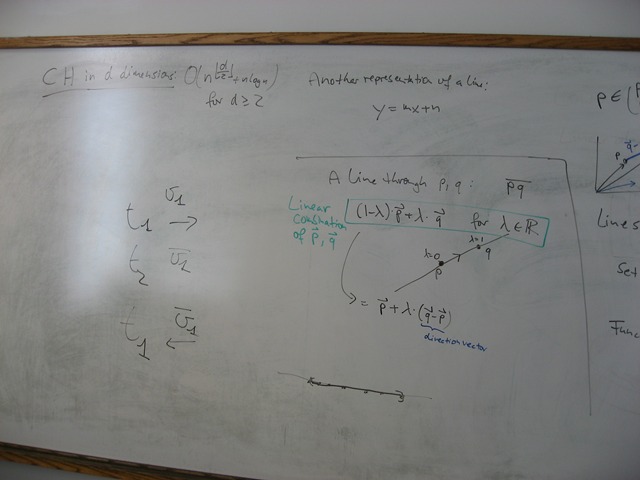 CH in d dimensions: O(n^⌊d/2⌋ + n log n)
for d ≥ 2
t1 → v̅1
t2 v̅2
t1 ← v̅1
Another representation of a line:
y = mx+n
A line through p, q: p̅q̅
Linear combination of p⃗, q⃗
(1-λ)·p⃗ + λ·q⃗ for λ ∈ ℝ
λ=0
p
λ=1
q
= p⃗ + λ·(q⃗-p⃗)
direction vector
p ∈ (
p
q-
Lines
Set
Func